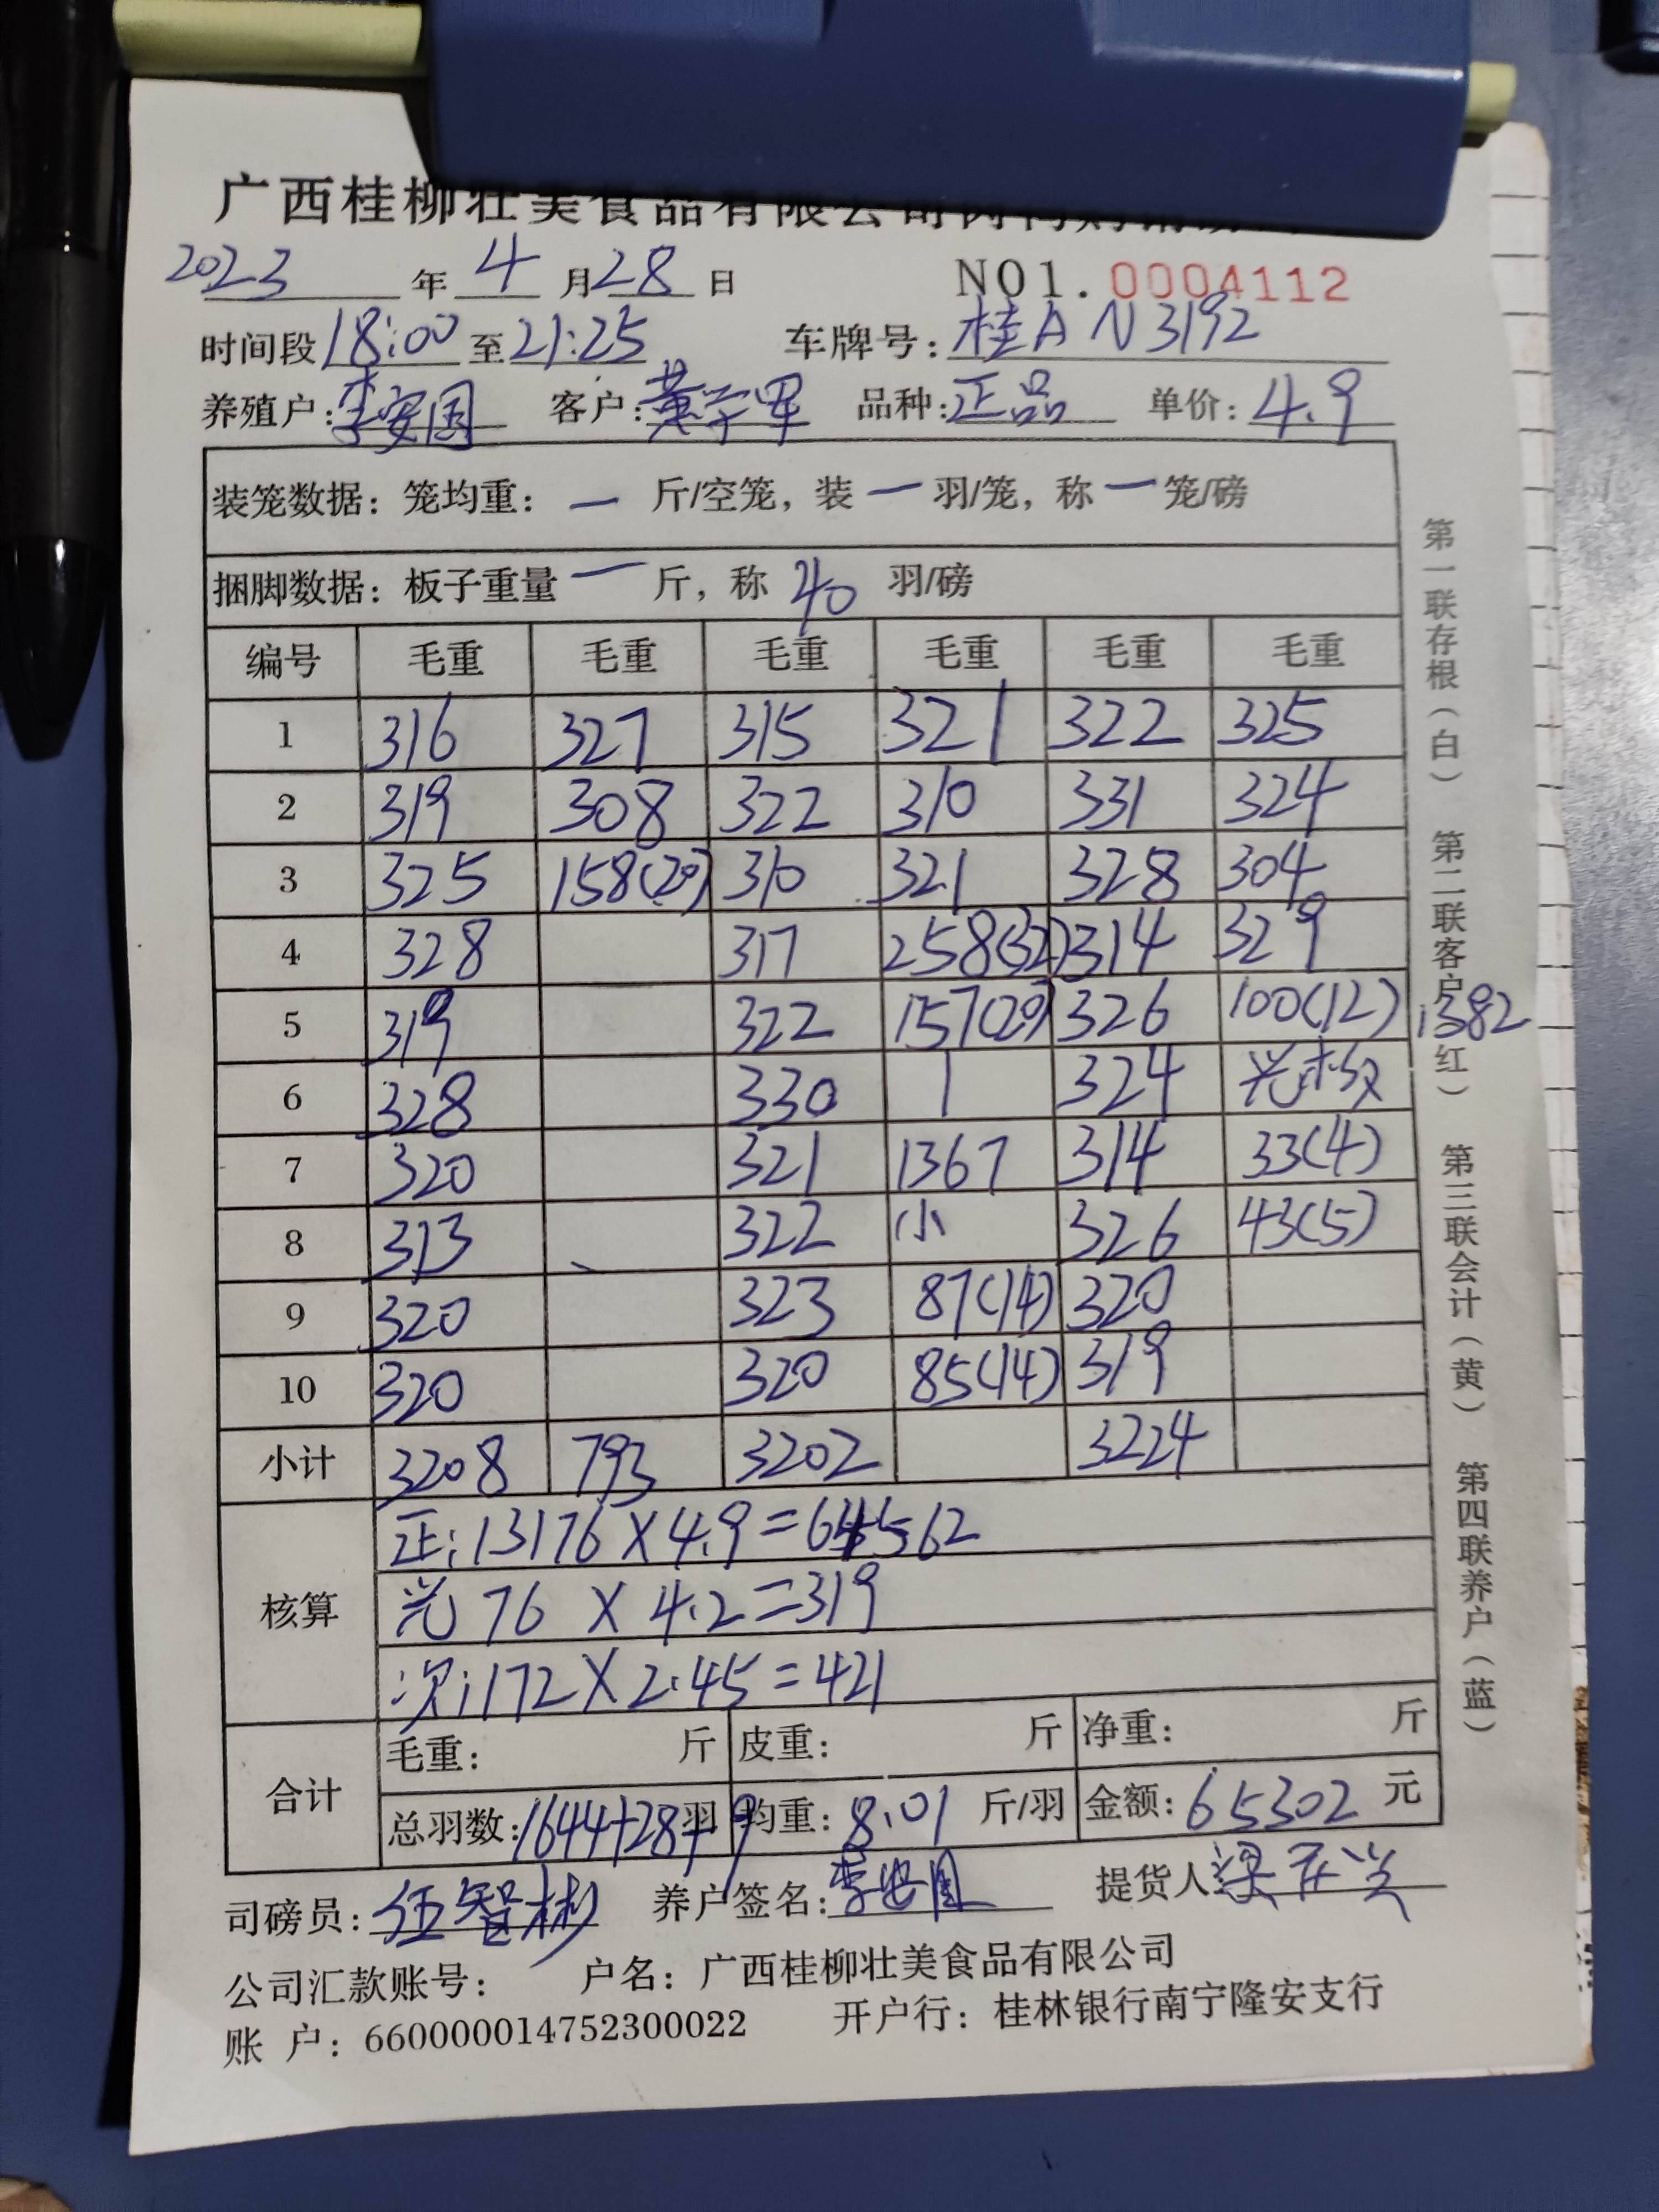 广西桂柳壮美食品有限公司肉
2023年4月28日 NO1.0004112
时间段18:00至21:25 车牌号:桂A N3192
养殖户:李安国 客户:黄 军 品种:正品 单价:4.9
装笼数据:笼均重:一斤/空笼,装一羽/笼,称一笼/磅
捆脚数据:板子重量一斤,称40羽/磅
编号 毛重 毛重 毛重 毛重 毛重 毛重
1 316 327 315 321 322 325
2 319 308 322 310 331 324
3 325 158(20) 310 321 328 304
4 328 317 258(32) 314 329
5 319 322 157(20) 326 100(12) 1382
6 328 330 1 324 光
7 320 321 1367 314 33(4)
8 313 322 小 326 43(5)
9 320 323 87(14) 320
10 320 320 85(14) 319
小计 3208 793 3202 3224
核算
正:13176×4.9=64562
光76×4.2=319
次:172×2.45=421
合计
毛重: 斤 皮重: 斤 净重: 斤
总羽数:1644+28+9羽 均重:8.01斤/羽 金额:65302元
司磅员:伍智彬 养户签名:李安国 提货人:
公司汇款账号: 户名:广西桂柳壮美食品有限公司
账 户:660000014752300022 开户行:桂林银行南宁隆安支行
第一联存根(白) 第二联客户(红) 第三联会计(黄) 第四联养户(蓝)